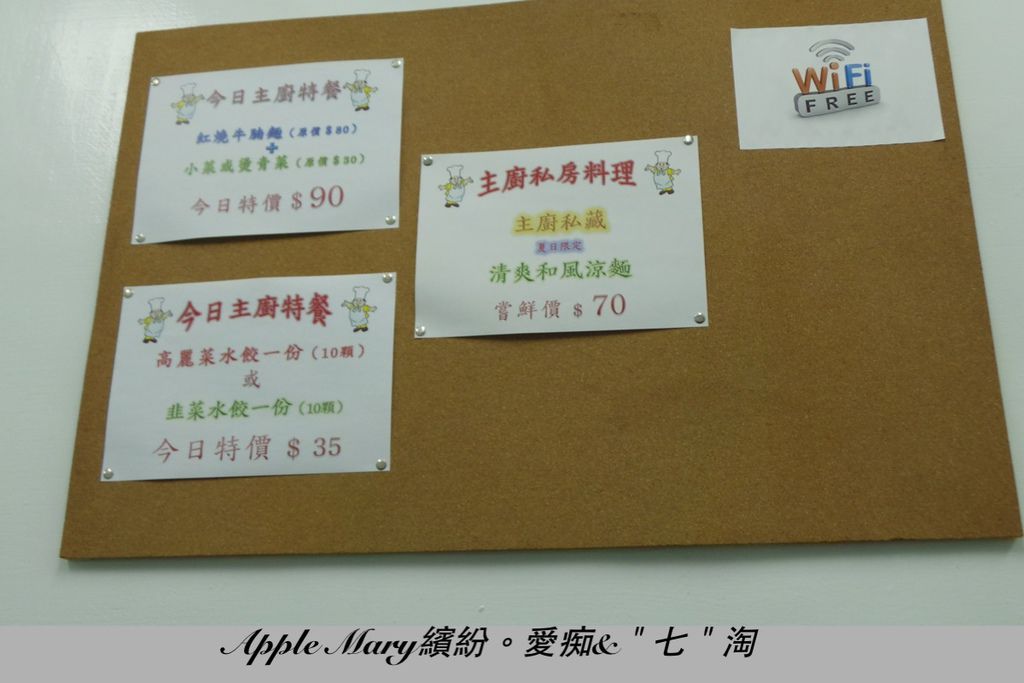 今日主廚特餐
紅燒牛腩麵（原價$80）
+
小菜或燙青菜（原價$30）
今日特價 $ 90
主廚私房料理
主廚私藏
夏日限定
清爽和風涼麵
嘗鮮價 $ 70
今日主廚特餐
高麗菜水餃一份（10顆）
或
韭菜水餃一份（10顆）
今日特價 $ 35
WiFi
FREE
Apple Mary繽紛。愛痴&"七"淘